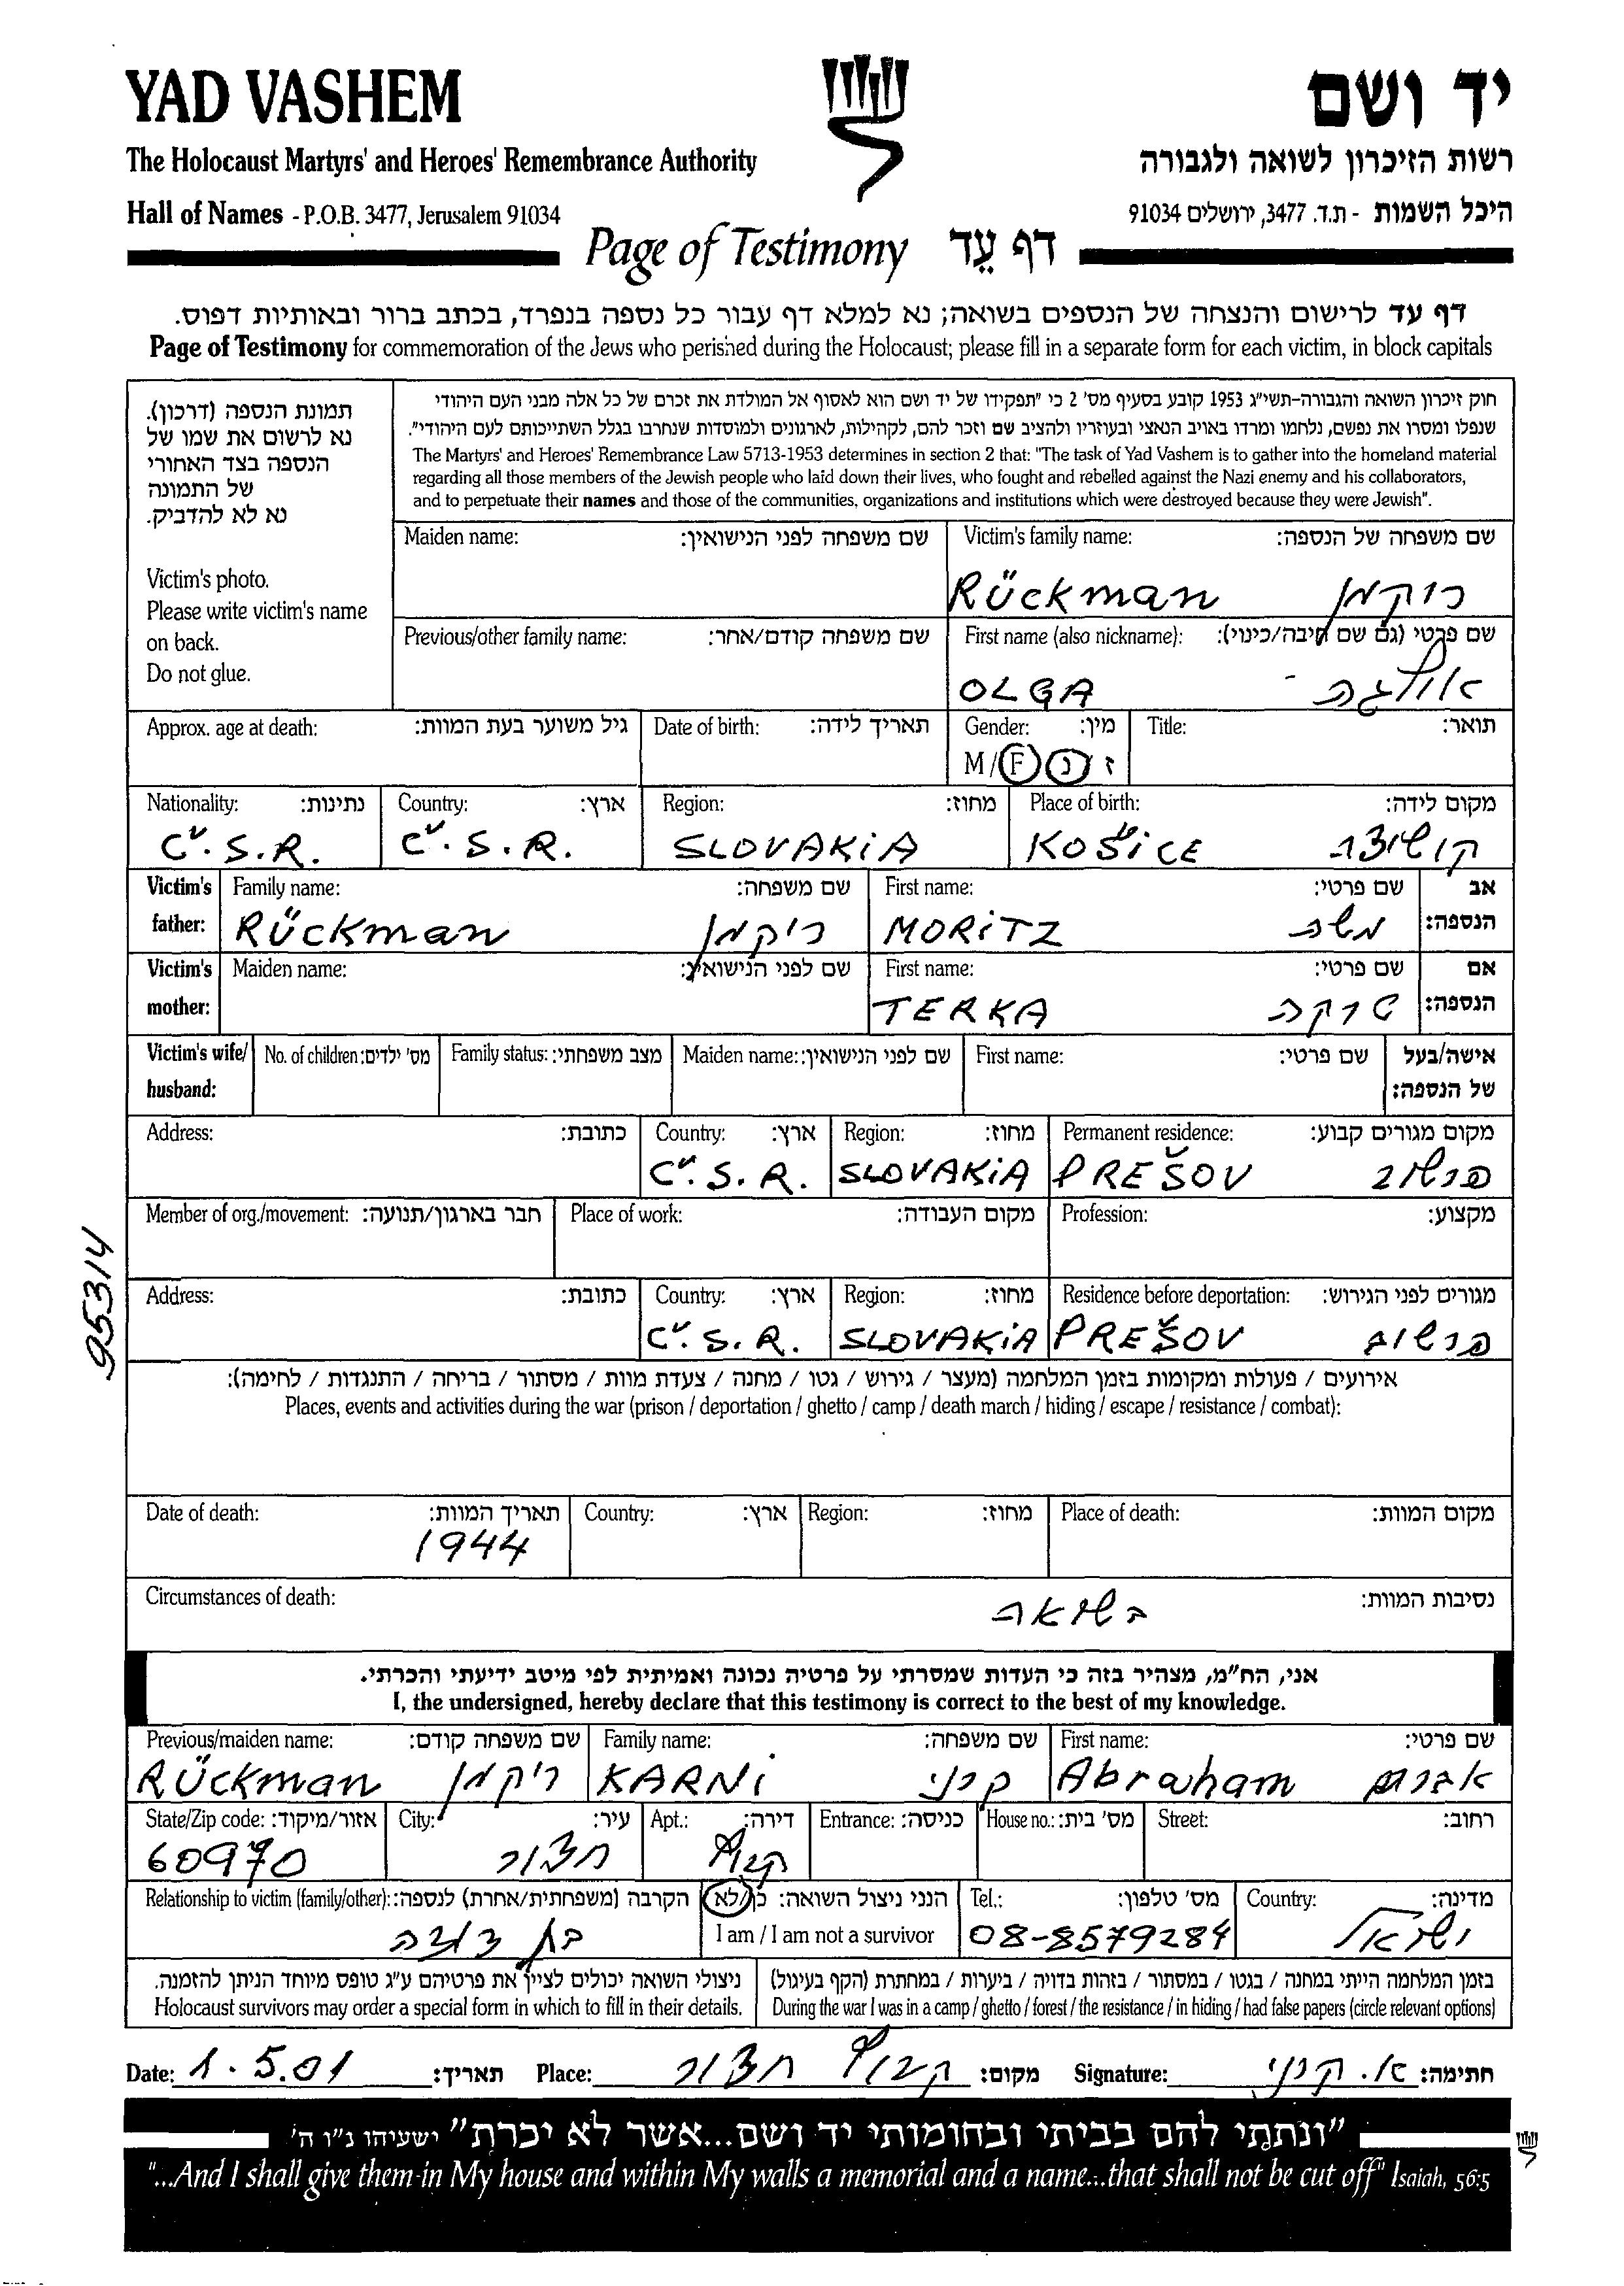 YAD VASHEM
יד ושם
The Holocaust Martyrs' and Heroes' Remembrance Authority
רשות הזיכרון לשואה ולגבורה
Hall of Names - P.O.B. 3477, Jerusalem 91034
היכל השמות - ת.ד. 3477, ירושלים 91034
Page of Testimony דף עֵד
דף עד לרישום והנצחה של הנספים בשואה; נא למלא דף עבור כל נספה בנפרד, בכתב ברור ובאותיות דפוס.
Page of Testimony for commemoration of the Jews who perished during the Holocaust; please fill in a separate form for each victim, in block capitals
תמונת הנספה (דרכון).
נא לרשום את שמו של
הנספה בצד האחורי
של התמונה
נא לא להדביק.
Victim's photo.
Please write victim's name
on back.
Do not glue.
חוק זיכרון השואה והגבורה-תשי"ג 1953 קובע בסעיף מס' 2 כי "תפקידו של יד ושם הוא לאסוף אל המולדת את זכרם של כל אלה מבני העם היהודי
שנפלו ומסרו את נפשם, נלחמו ומרדו באויב הנאצי ובעוזריו ולהציב שם וזכר להם, לקהילות, לארגונים ולמוסדות שנחרבו בגלל השתייכותם לעם היהודי".
The Martyrs' and Heroes' Remembrance Law 5713-1953 determines in section 2 that: "The task of Yad Vashem is to gather into the homeland material
regarding all those members of the Jewish people who laid down their lives, who fought and rebelled against the Nazi enemy and his collaborators,
and to perpetuate their names and those of the communities, organizations and institutions which were destroyed because they were Jewish".
Maiden name: שם משפחה לפני הנישואין:
Victim's family name: שם משפחה של הנספה:
Rückman ריקמן
Previous/other family name: שם משפחה קודם/אחר:
First name (also nickname): שם פרטי (גם שם חיבה/כינוי):
OLGA אולגה
Approx. age at death: גיל משוער בעת המוות:
Date of birth: תאריך לידה:
Gender: מין:
M / F נ / ז
Title: תואר:
Nationality: נתינות:
Č.S.R.
Country: ארץ:
Č.S.R.
Region: מחוז:
SLOVAKiA
Place of birth: מקום לידה:
KOŠiCE קושיצה
Victim's father:
Family name: שם משפחה:
Rückman ריקמן
First name: שם פרטי:
MORiTZ משה
אב הנספה:
Victim's mother:
Maiden name: שם לפני הנישואין:
First name: שם פרטי:
TERKA טרקה
אם הנספה:
Victim's wife/ husband:
No. of children: מס' ילדים:
Family status: מצב משפחתי:
Maiden name: שם לפני הנישואין:
First name: שם פרטי:
אישה/בעל של הנספה:
Address: כתובת:
Country: ארץ:
Č.S.R.
Region: מחוז:
SLOVAKiA
Permanent residence: מקום מגורים קבוע:
PREŠOV פרשוב
Member of org./movement: חבר בארגון/תנועה:
Place of work: מקום העבודה:
Profession: מקצוע:
95314
Address: כתובת:
Country: ארץ:
Č.S.R.
Region: מחוז:
SLOVAKiA
Residence before deportation: מגורים לפני הגירוש:
PREŠOV פרשוב
אירועים / פעולות ומקומות בזמן המלחמה (מעצר / גירוש / גטו / מחנה / צעדת מוות / מסתור / בריחה / התנגדות / לחימה):
Places, events and activities during the war (prison / deportation / ghetto / camp / death march / hiding / escape / resistance / combat):
Date of death: תאריך המוות:
1944
Country: ארץ:
Region: מחוז:
Place of death: מקום המוות:
Circumstances of death: נסיבות המוות:
בשואה
אני, הח"מ, מצהיר בזה כי העדות שמסרתי על פרטיה נכונה ואמיתית לפי מיטב ידיעתי והכרתי.
I, the undersigned, hereby declare that this testimony is correct to the best of my knowledge.
Previous/maiden name: שם משפחה קודם:
Rückman ריקמן
Family name: שם משפחה:
KARNi קרני
First name: שם פרטי:
Abraham אברהם
State/Zip code: אזור/מיקוד:
60970
City: עיר:
חצור
Apt.: דירה:
קבוץ
Entrance: כניסה:
House no.: מס' בית:
Street: רחוב:
Relationship to victim (family/other): הקרבה (משפחתית/אחרת) לנספה:
בת דודה
הנני ניצול השואה: כן/לא
I am / I am not a survivor
Tel.: מס' טלפון:
08-8579284
Country: מדינה:
ישראל
ניצולי השואה יכולים לציין את פרטיהם ע"ג טופס מיוחד הניתן להזמנה.
Holocaust survivors may order a special form in which to fill in their details.
בזמן המלחמה הייתי במחנה / בגטו / במסתור / בזהות בדויה / ביערות / במחתרת (הקף בעיגול)
During the war I was in a camp / ghetto / forest / the resistance / in hiding / had false papers (circle relevant options)
Date: 1.5.01 תאריך:
Place: קבוץ חצור מקום:
Signature: א. קרני חתימה:
"ונתתי להם בביתי ובחומותי יד ושם...אשר לא יכרת" ישעיהו נ"ו ה'
"...And I shall give them in My house and within My walls a memorial and a name...that shall not be cut off" Isaiah, 56:5